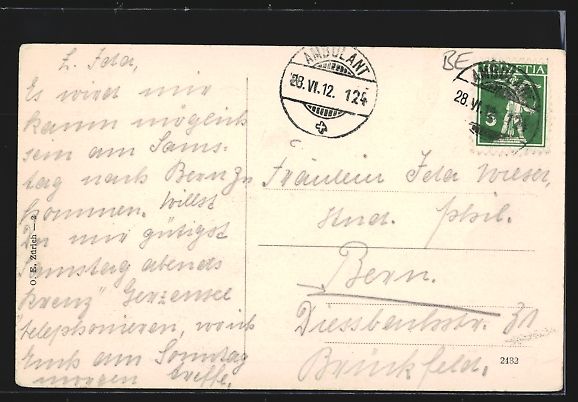 L. Ida,
Es wird mir
kaum möglich
sein am Sams-
tag nach Bern zu
kommen. Willst
Du mir gütigst
Samstag abends
Kreuz" Gerzensee
telephonieren, wo ich
Euch am Sonntag
morgen treffe.
O. E. Zürich — 2.
AMBULANT
28.VI.12. 124
BE
AMBULANT
28.VI
HELVETIA
5
Fräulein Ida Wieser,
stud. phil.
Bern.
Diessbachstr. 31
Brückfeld.
2132